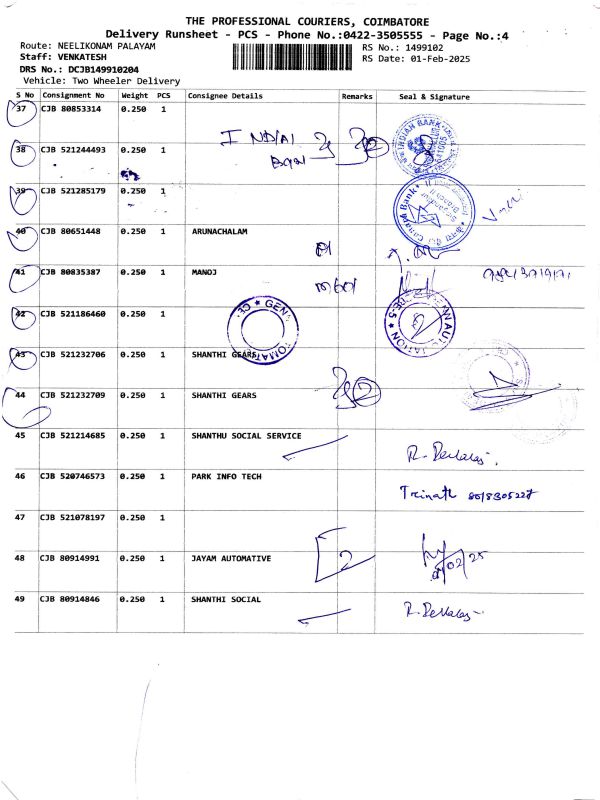 THE PROFESSIONAL COURIERS, COIMBATORE
Delivery Runsheet - PCS - Phone No.:0422-3505555 - Page No.:4
Route: NEELIKONAM PALAYAM
RS No.: 1499102
Staff: VENKATESH
RS Date: 01-Feb-2025
DRS No.: DCJB149910204
Vehicle: Two Wheeler Delivery
S No Consignment No Weight PCS Consignee Details Remarks Seal & Signature
37 CJB 80853314 0.250 1
38 CJB 521244493 0.250 1
39 CJB 521285179 0.250 1
40 CJB 80651448 0.250 1 ARUNACHALAM
41 CJB 80835387 0.250 1 MANOJ
42 CJB 521186460 0.250 1
43 CJB 521232706 0.250 1 SHANTHI GEARS
44 CJB 521232709 0.250 1 SHANTHI GEARS 2
45 CJB 521214685 0.250 1 SHANTHU SOCIAL SERVICE
46 CJB 520746573 0.250 1 PARK INFO TECH Trinath
47 CJB 521078197 0.250 1
48 CJB 80914991 0.250 1 JAYAM AUTOMATIVE 2
49 CJB 80914846 0.250 1 SHANTHI SOCIAL